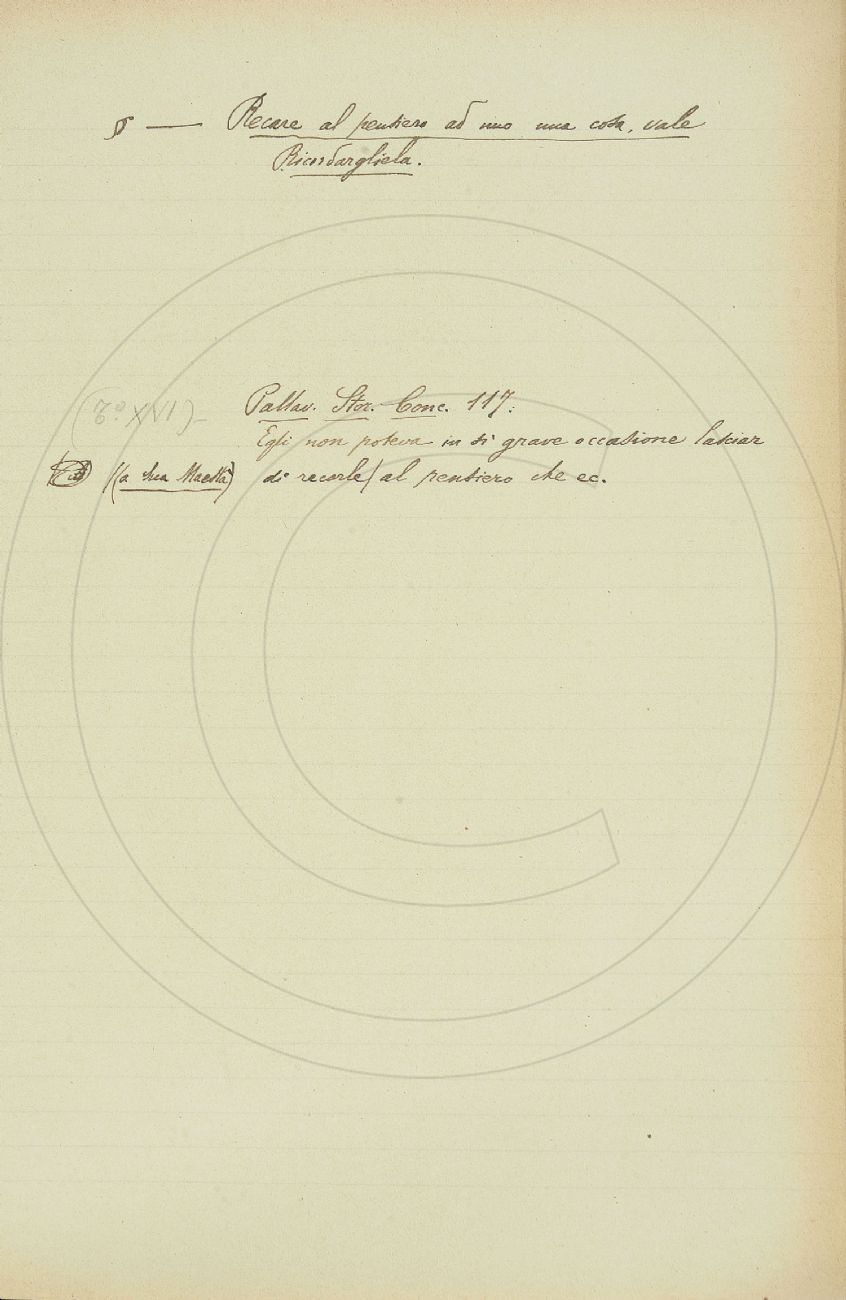 § — Recare al pensiero ad uno una cosa, vale
Ricordargliela.
(T.o XVI) –
Pallav. Stor. Conc. 117:
Egli non poteva in sì grave occasione lasciar
(a Sua Maestà) di recarle) al pensiero che ec.